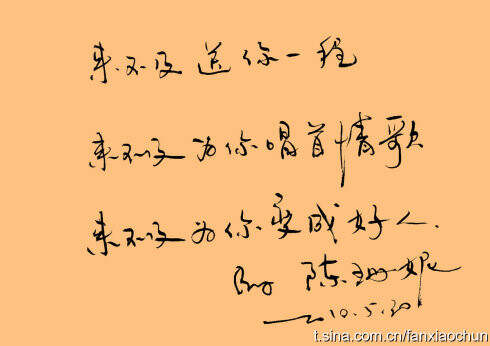 来不及送你一程
来不及为你唱首情歌
来不及为你变成好人.
By 陈珊妮
2010.5.30
t.sina.com.cn/fanxiaochun